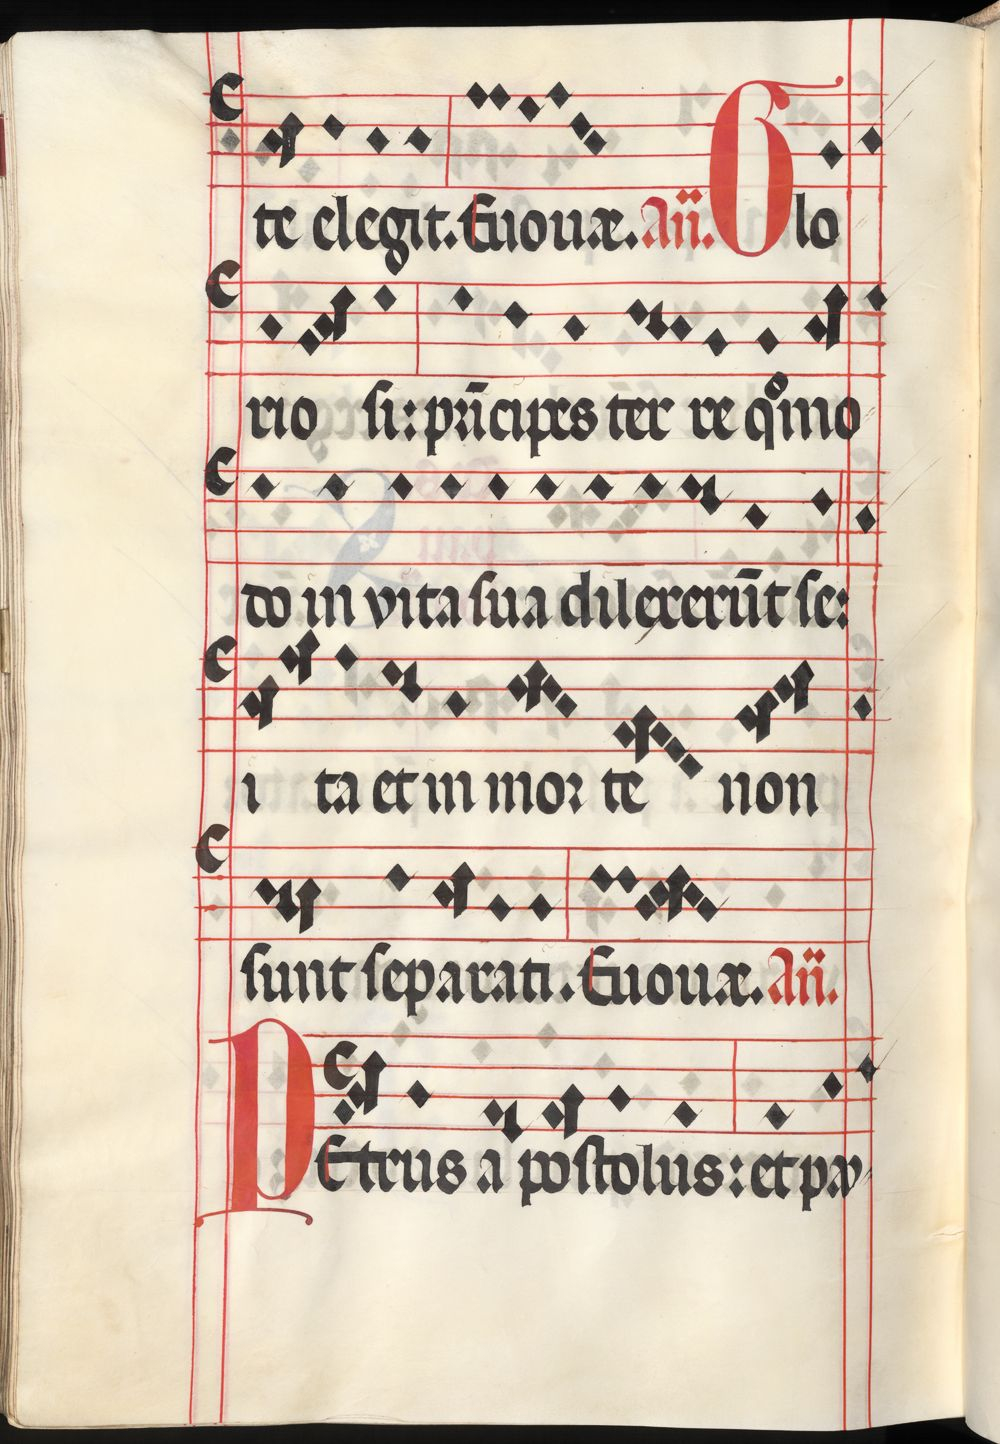 te elegit. Euouæ. Añ. Glo
rio si: prīcipes ter re qͦmo
do in vita sua dilexerūt se:
i ta et in mor te non
sunt separati. Euouæ. Añ.
PEtrus a postolus: et pau